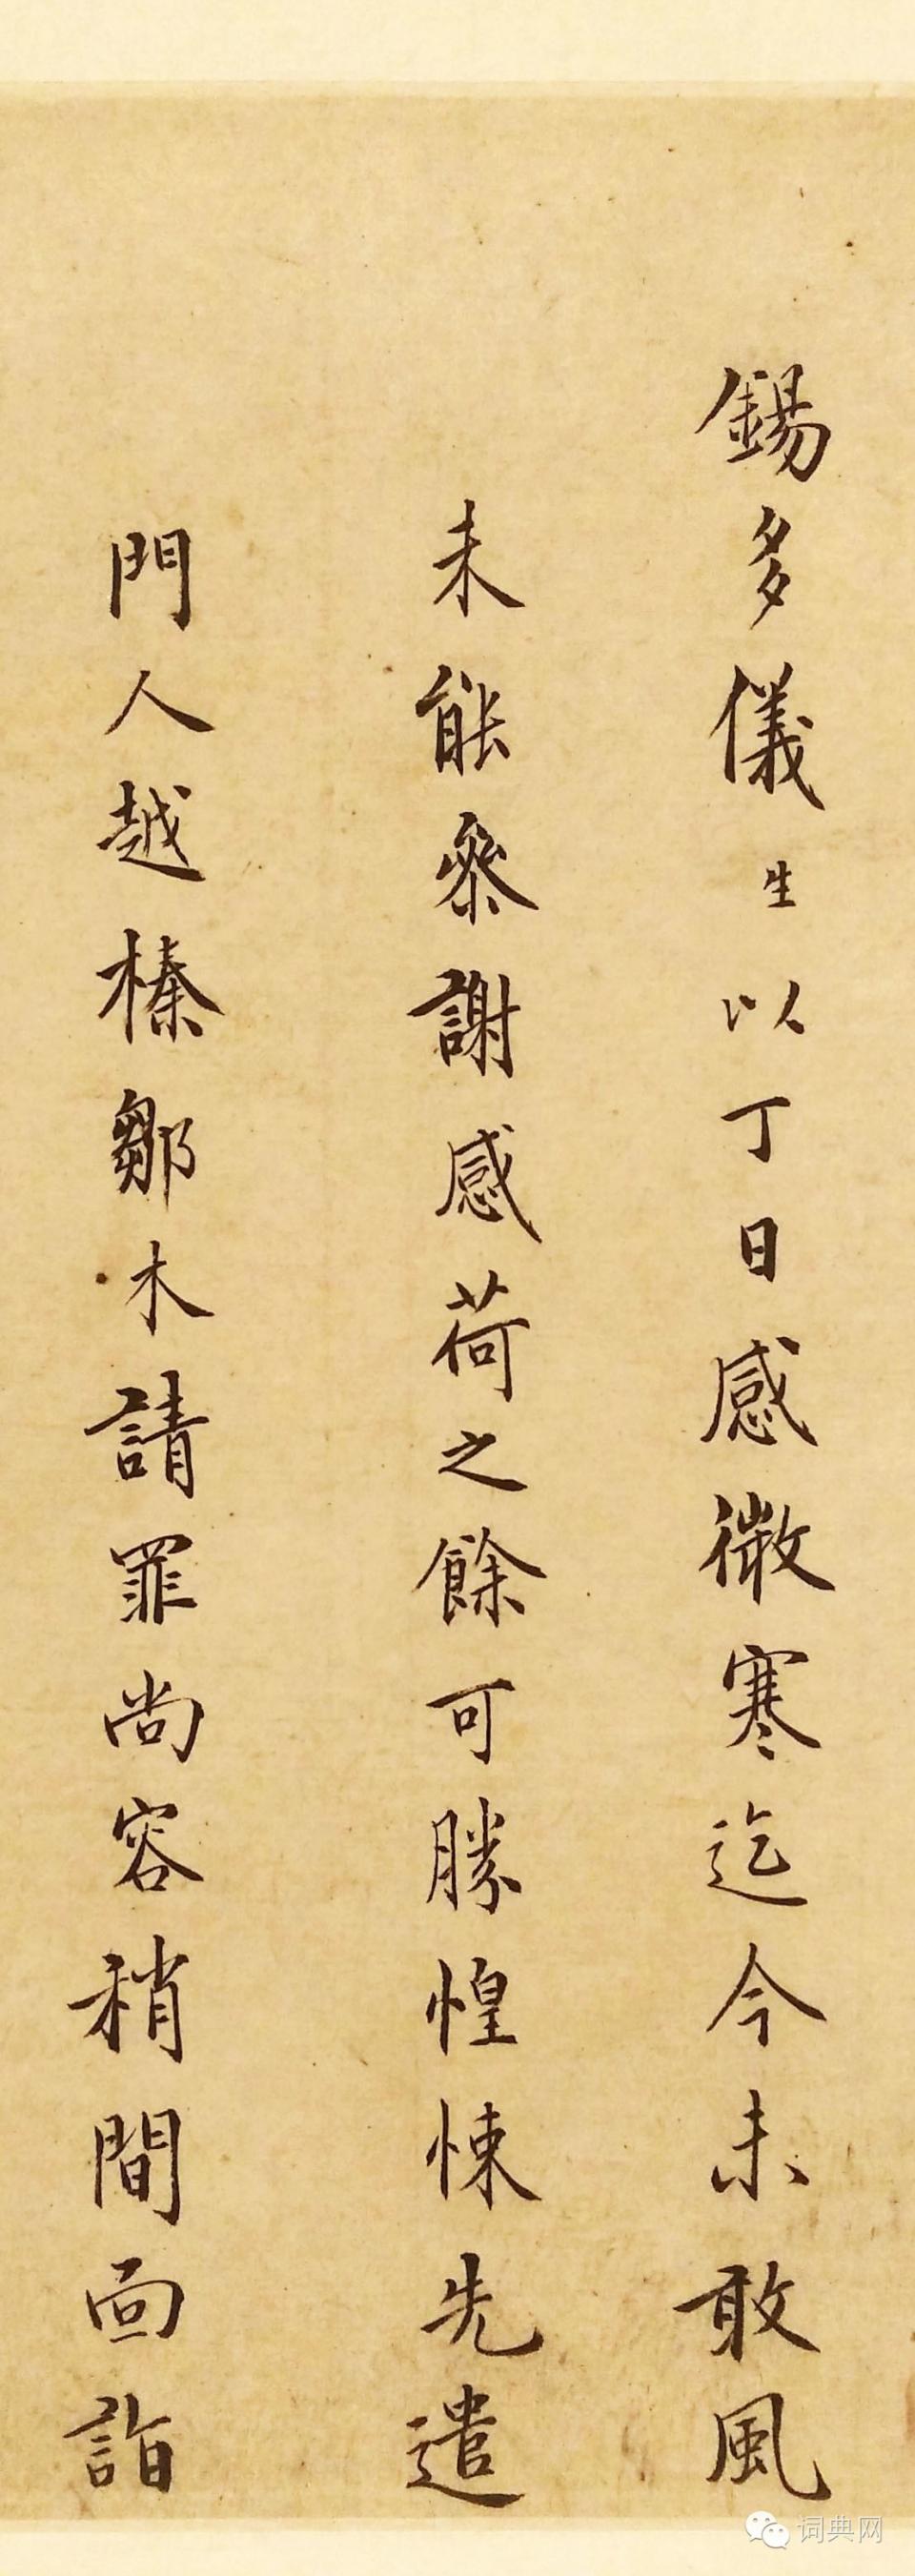 錫多儀生以丁日感微寒迄今未敢風
未能叅謝感荷之餘可勝惶悚先遣
門人越榛鄒木請罪尚容稍間面詣
词典网